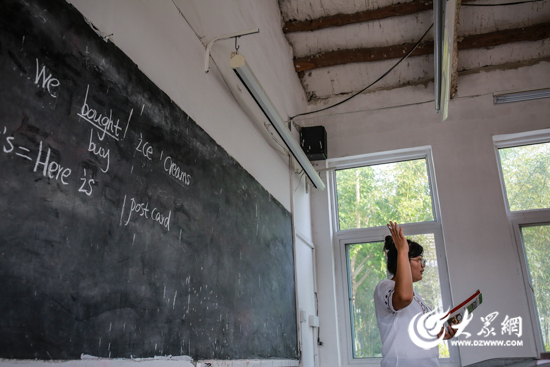 We bought ice creams
buy
's = Here is
postcard
大众网
WWW.DZWWW.COM